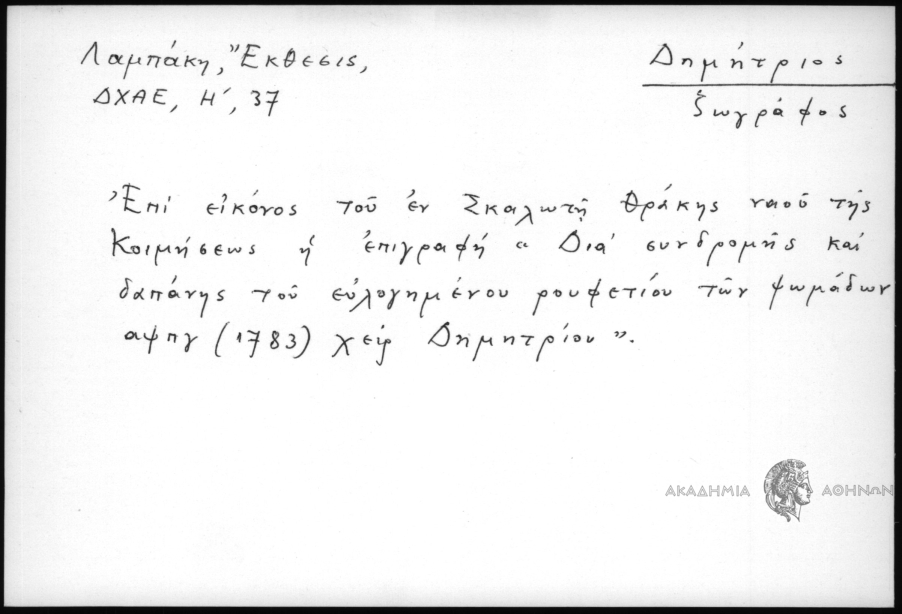 Λαμπάκη, Ἔκθεσις,
ΔΧΑΕ, Η΄, 37
Δημήτριος
ζωγράφος
Ἐπί εἰκόνος τοῦ ἐν Σκαλωτῇ Θράκης ναοῦ τῆς
Κοιμήσεως ἡ ἐπιγραφή « Διά συνδρομῆς καί
δαπάνης τοῦ εὐλογημένου ρουφετίου τῶν ψωμάδων
αψπγ (1783) χείρ Δημητρίου ».
ΑΚΑΔΗΜΙΑ ΑΘΗΝΩΝ